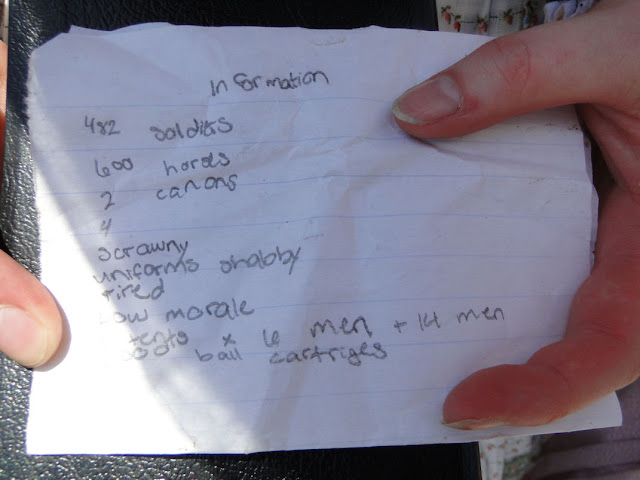 Information
482 soldiers
600
2 canons
4
scrawny
uniforms shabby
tired
low morale
tents x 6 men + 14 men
ball cartriges